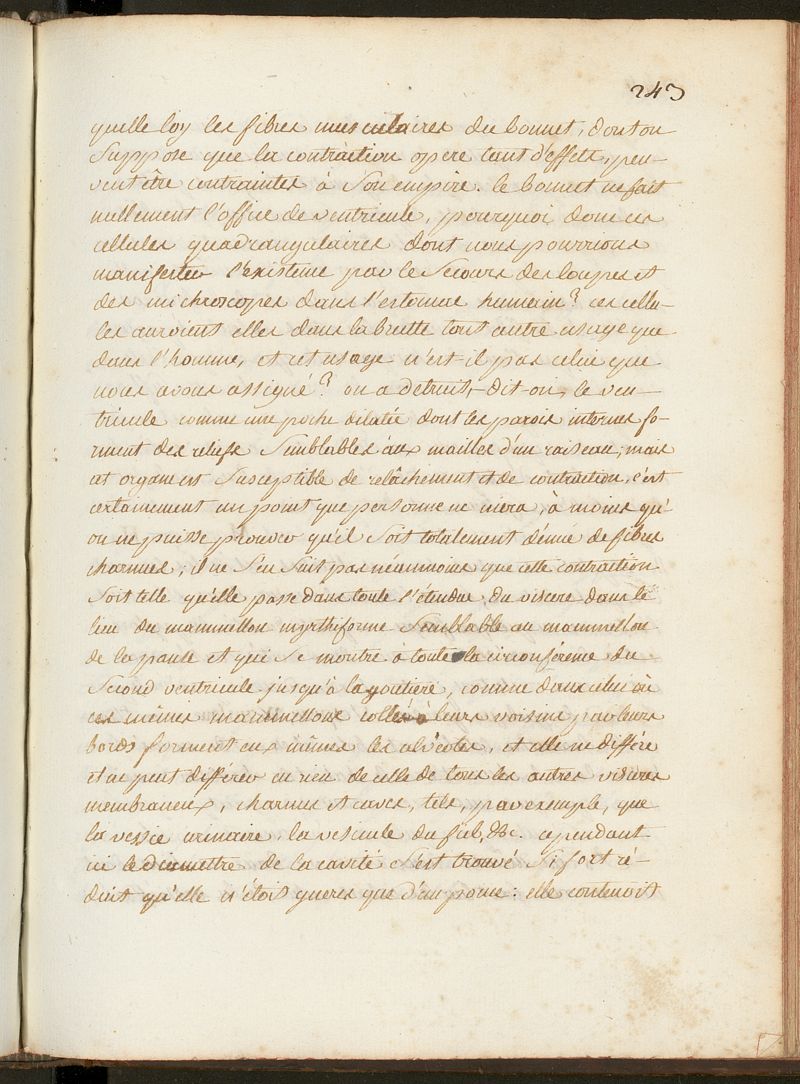 243
quelle loy les fibres musculaires du bonnet, dont on
Suppose que la contraction opere tant d'effets, peu-
vent être contraintes à Son empire. le bonnet ne fait
nullement l'office de ventricule, pourquoi donc ces
cellules quadrangulaires dont nous pourrions
manifester l'existence par le Secours des loupes et
des michroscopes dans l'estomac humain? ces cellu-
les auroient elles dans la brutte tout autre usage que
dans l'homme, et cet usage n'est-il pas celui que
nous avons assigné? on a detruit, dit-on, le ven-
tricule comme une poche dilatée dont les parois internes fo-
rment des reliefs Semblables aux mailles d'un raiseau; mais
cet organe est Susceptible de relâchement et de contraction, c'est
certainement un point que personne ne niera, à moins qu'
on ne puisse prouver qu'il Soit totalement dénué de fibres
charnues; il ne S'en Suit pas néanmoins que cette contraction
Soit telle qu'elle passe dans toute l'étendue du viscere dans le
lieu du mammellon myrthiforme Semblable au mammellon
de la panse et qui Se montre à toute la circonférence du
Second ventricule jusqu'à la goutiere, comme dans celui où
ces mêmes mammellons collés à leurs voisins par leurs
bords forment eux mêmes les alvéoles, et elle ne différe
et ne peut différer en rien de celle de tous les autres visceres
membraneux, charnus et caves, tels, par exemple, que
la vessie urinaire, la vesicule du fiel, &c. cependant
ici le diamettre de la cavité S'est trouvé Si fort ré-
duit qu'elle n'étoit gueres que d'un pouce: elle contenoit